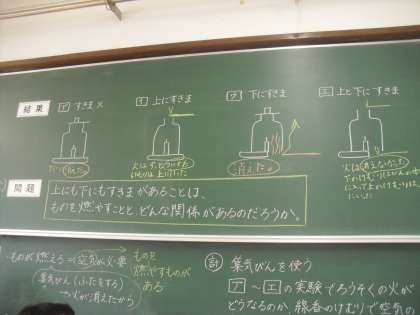 結果
ア すきま×
イ 上にすきま
ウ 下にすきま
エ 上と下にすきま
消えた。
消えた。
火は消えなかった
問題
上にも下にもすきまがあることは、
ものを燃やすことと、どんな関係があるのだろうか。
ものが燃える→空気が必要
集気びん(ふたをする)
→火が消えたから
ものを
燃やすものが
ある
集気びんを使う
ア〜エの実験でろうそくの火が
どうなるのか、線香のけむりで空気の